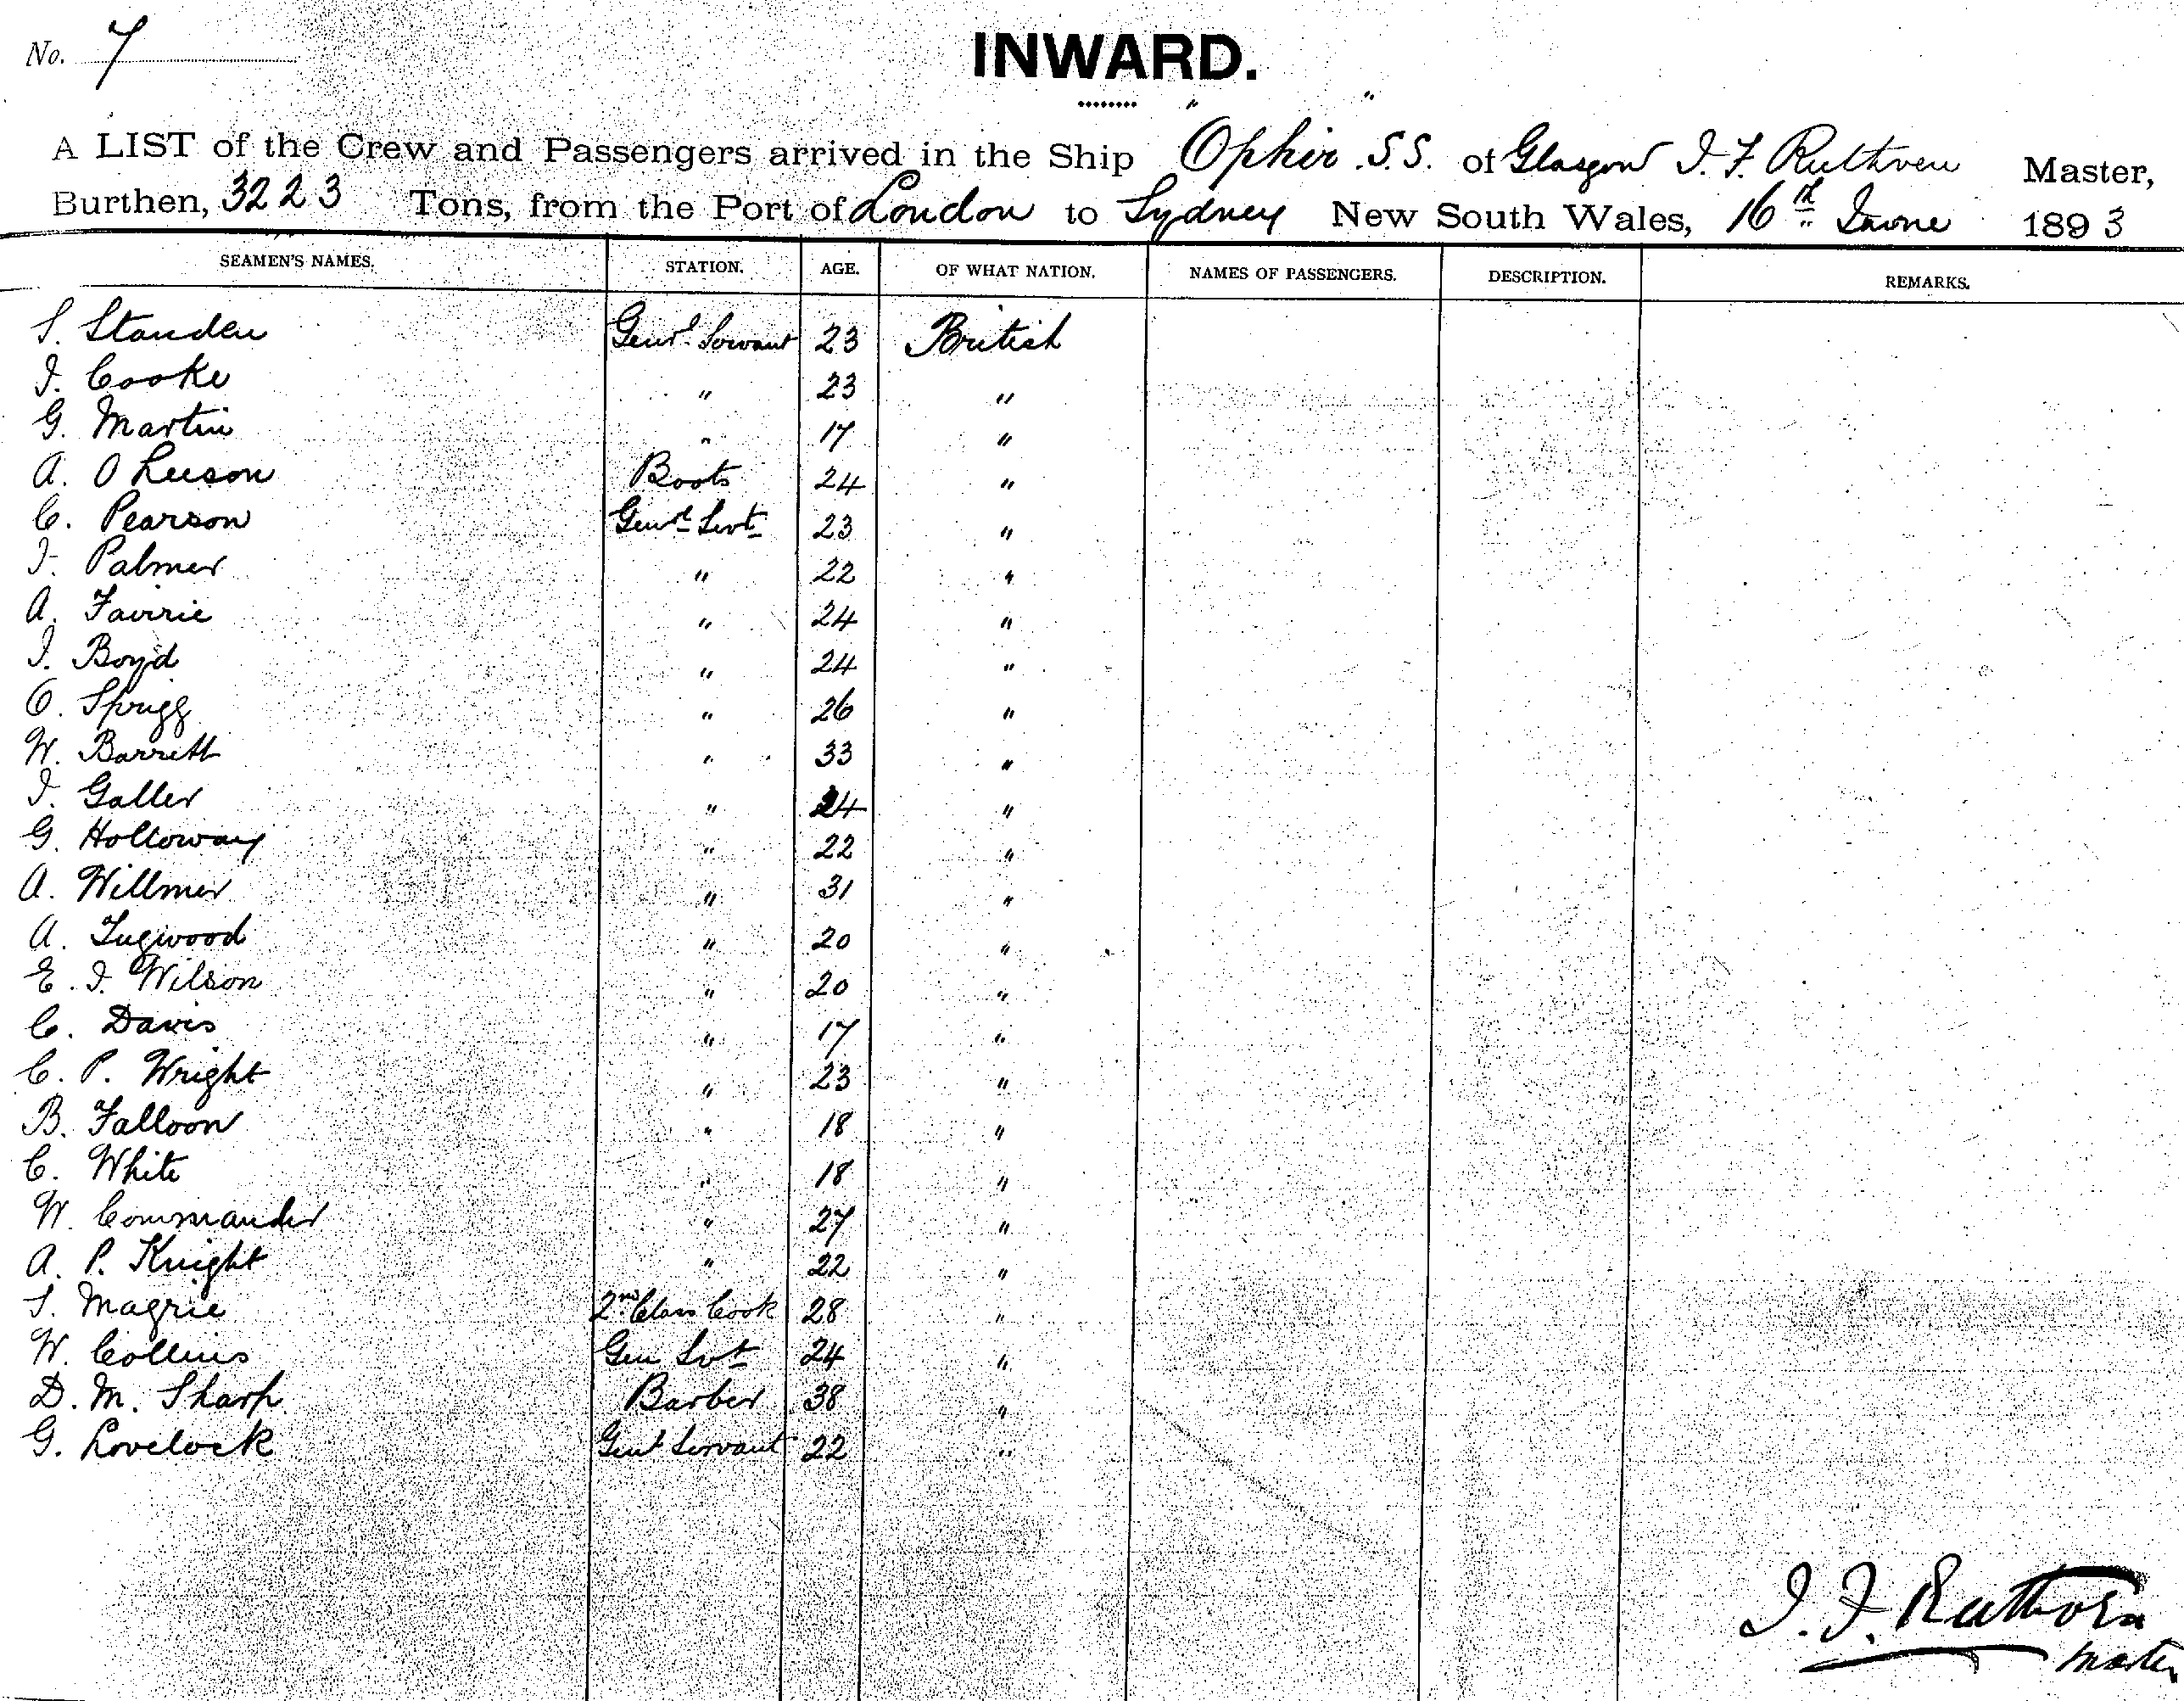 No. 7
INWARD.
A LIST of the Crew and Passengers arrived in the Ship "Ophir" S.S. of Glasgow J. F. Ruthven Master,
Burthen, 3223 Tons, from the Port of London to Sydney New South Wales, 16th June 1893
SEAMEN'S NAMES. STATION. AGE. OF WHAT NATION. NAMES OF PASSENGERS. DESCRIPTION. REMARKS.
S. Standen Genrl. Servant 23 British
J. Cooke " 23 "
G. Martin " 17 "
A. O Leeson Boots 24 "
C. Pearson Genrl Servt 23 "
J. Palmer " 22 "
A. Fairrie " 24 "
J. Boyd " 24 "
O. Sprigg " 26 "
W. Barrett " 33 "
J. Galler " 24 "
G. Holloway " 22 "
A. Willmer " 31 "
A. Tugwood " 20 "
E. J. Wilson " 20 "
C. Davis " 17 "
C. P. Wright " 23 "
B. Falloon " 18 "
C. White " 18 "
W. Commander " 27 "
A. P. Knight " 22 "
S. Magrie 2nd Class Cook 28 "
W. Collins Gen Svt 24 "
D. M. Sharp Barber 38 "
G. Lovelock Genl Servant 22 "
J. F. Ruthven
Master